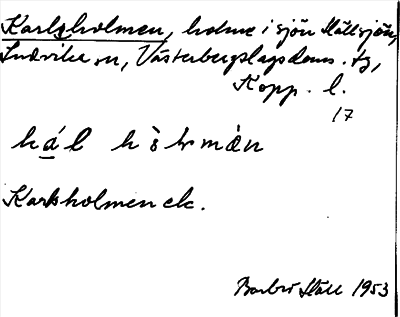 Karlsholmen, holme i sjön Hällsjön,
Ludvika sn, Västerbergslags doms. tg,
Kopp. l.
17
Karlsholmen ek.
Barbro Ståll 1953